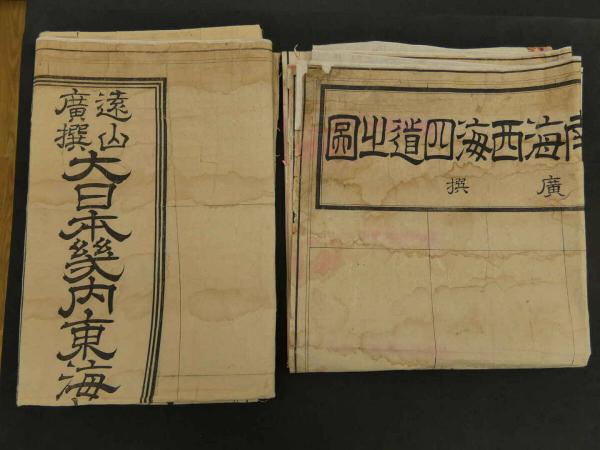 遠山
廣撰
大日本畿内東海
南海西海四道之圖
廣撰